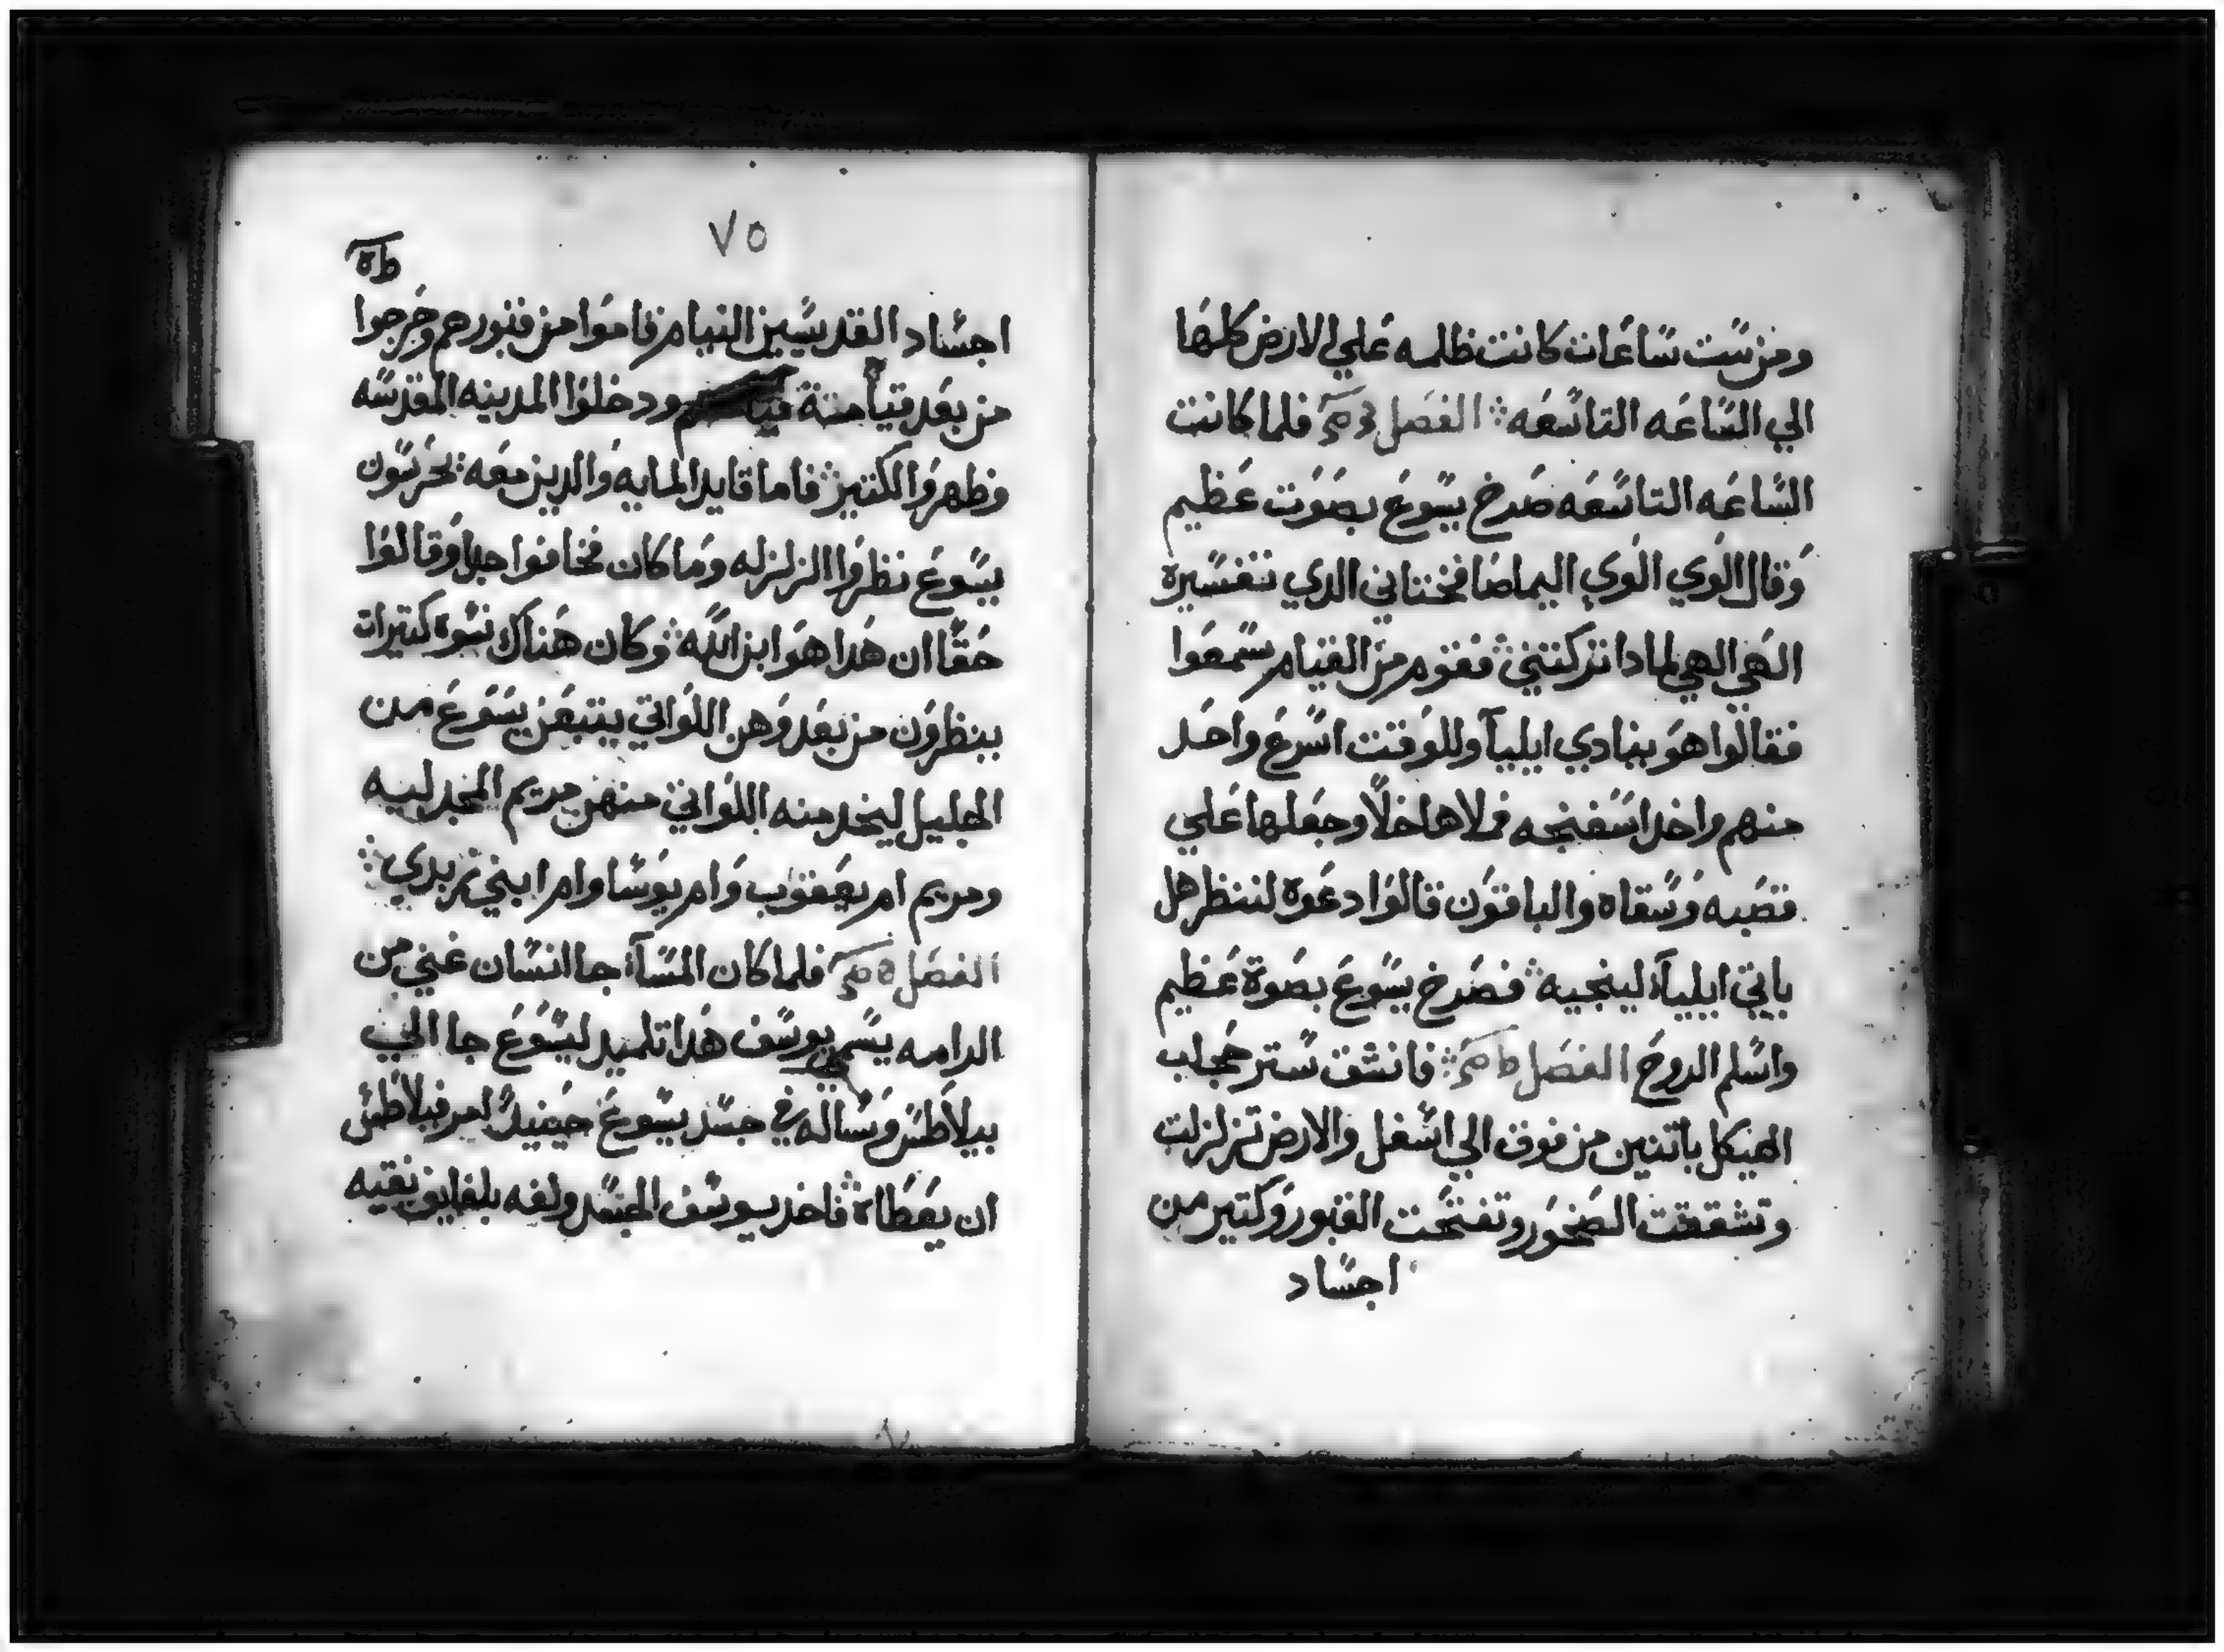 ومن ست ساعات كانت ظلمه علي الارض كلها
الي الساعه التاسعه ۞ الفصل فلما كانت
الساعه التاسعه صرخ يسوع بصوت عظيم
وقال الوي الوي اليماصا فختاني الدي تفسيرة
الهي الهي لمادا تركتني ۞ فقوم من القيام سمعوا
فقالوا هو ينادي ايليآ وللوقت اسرع واحد
منهم واخد اسفنجه فملاها خلاً وجعلها علي
قصبه وسقاه والباقون قالوا دعوة لننظر هل
ياتي ايليآ لينجيه ۞ فصرخ يسوع بصوة عظيم
واسلم الروح الفصل ۞ فانشق ستر حجاب
الهيكل باتنين من فوق الي اسفل والارض تزلزلت
وتشققت الصخور وتفتحت القبور وكتير من
اجساد
٧٥
اجساد القديسين النيام قاموا من قبورهم وخرجوا
من بعد قيامتة ودخلوا المدينه المقدسه
وظهروا لكتير ۞ فاما قايد المايه والدين معه يحرسون
يسوع نظروا الزلزله وما كان فخافوا جدا وقالوا
حقًا ان هدا هو ابن الله ۞ وكان هناك نسوه كتيرات
ينظرون من بعد وهن اللواتي يتبعن يسوع من
الجليل ليخدمنه اللواتي منهن مريم المجدليه
ومريم ام يعقوب وام يوسا وام ابني زبدي ۞
الفصل فلما كان المسآ جا انسان غني من
الرامه يسمي يوسف هدا تلميد ليسوع جا الي
بيلاطس وساله في جسد يسوع حينيدٍ امر فيلاطس
ان يعطاه ۞ فاخد يوسف الجسد ولفه بلفايف نقيه